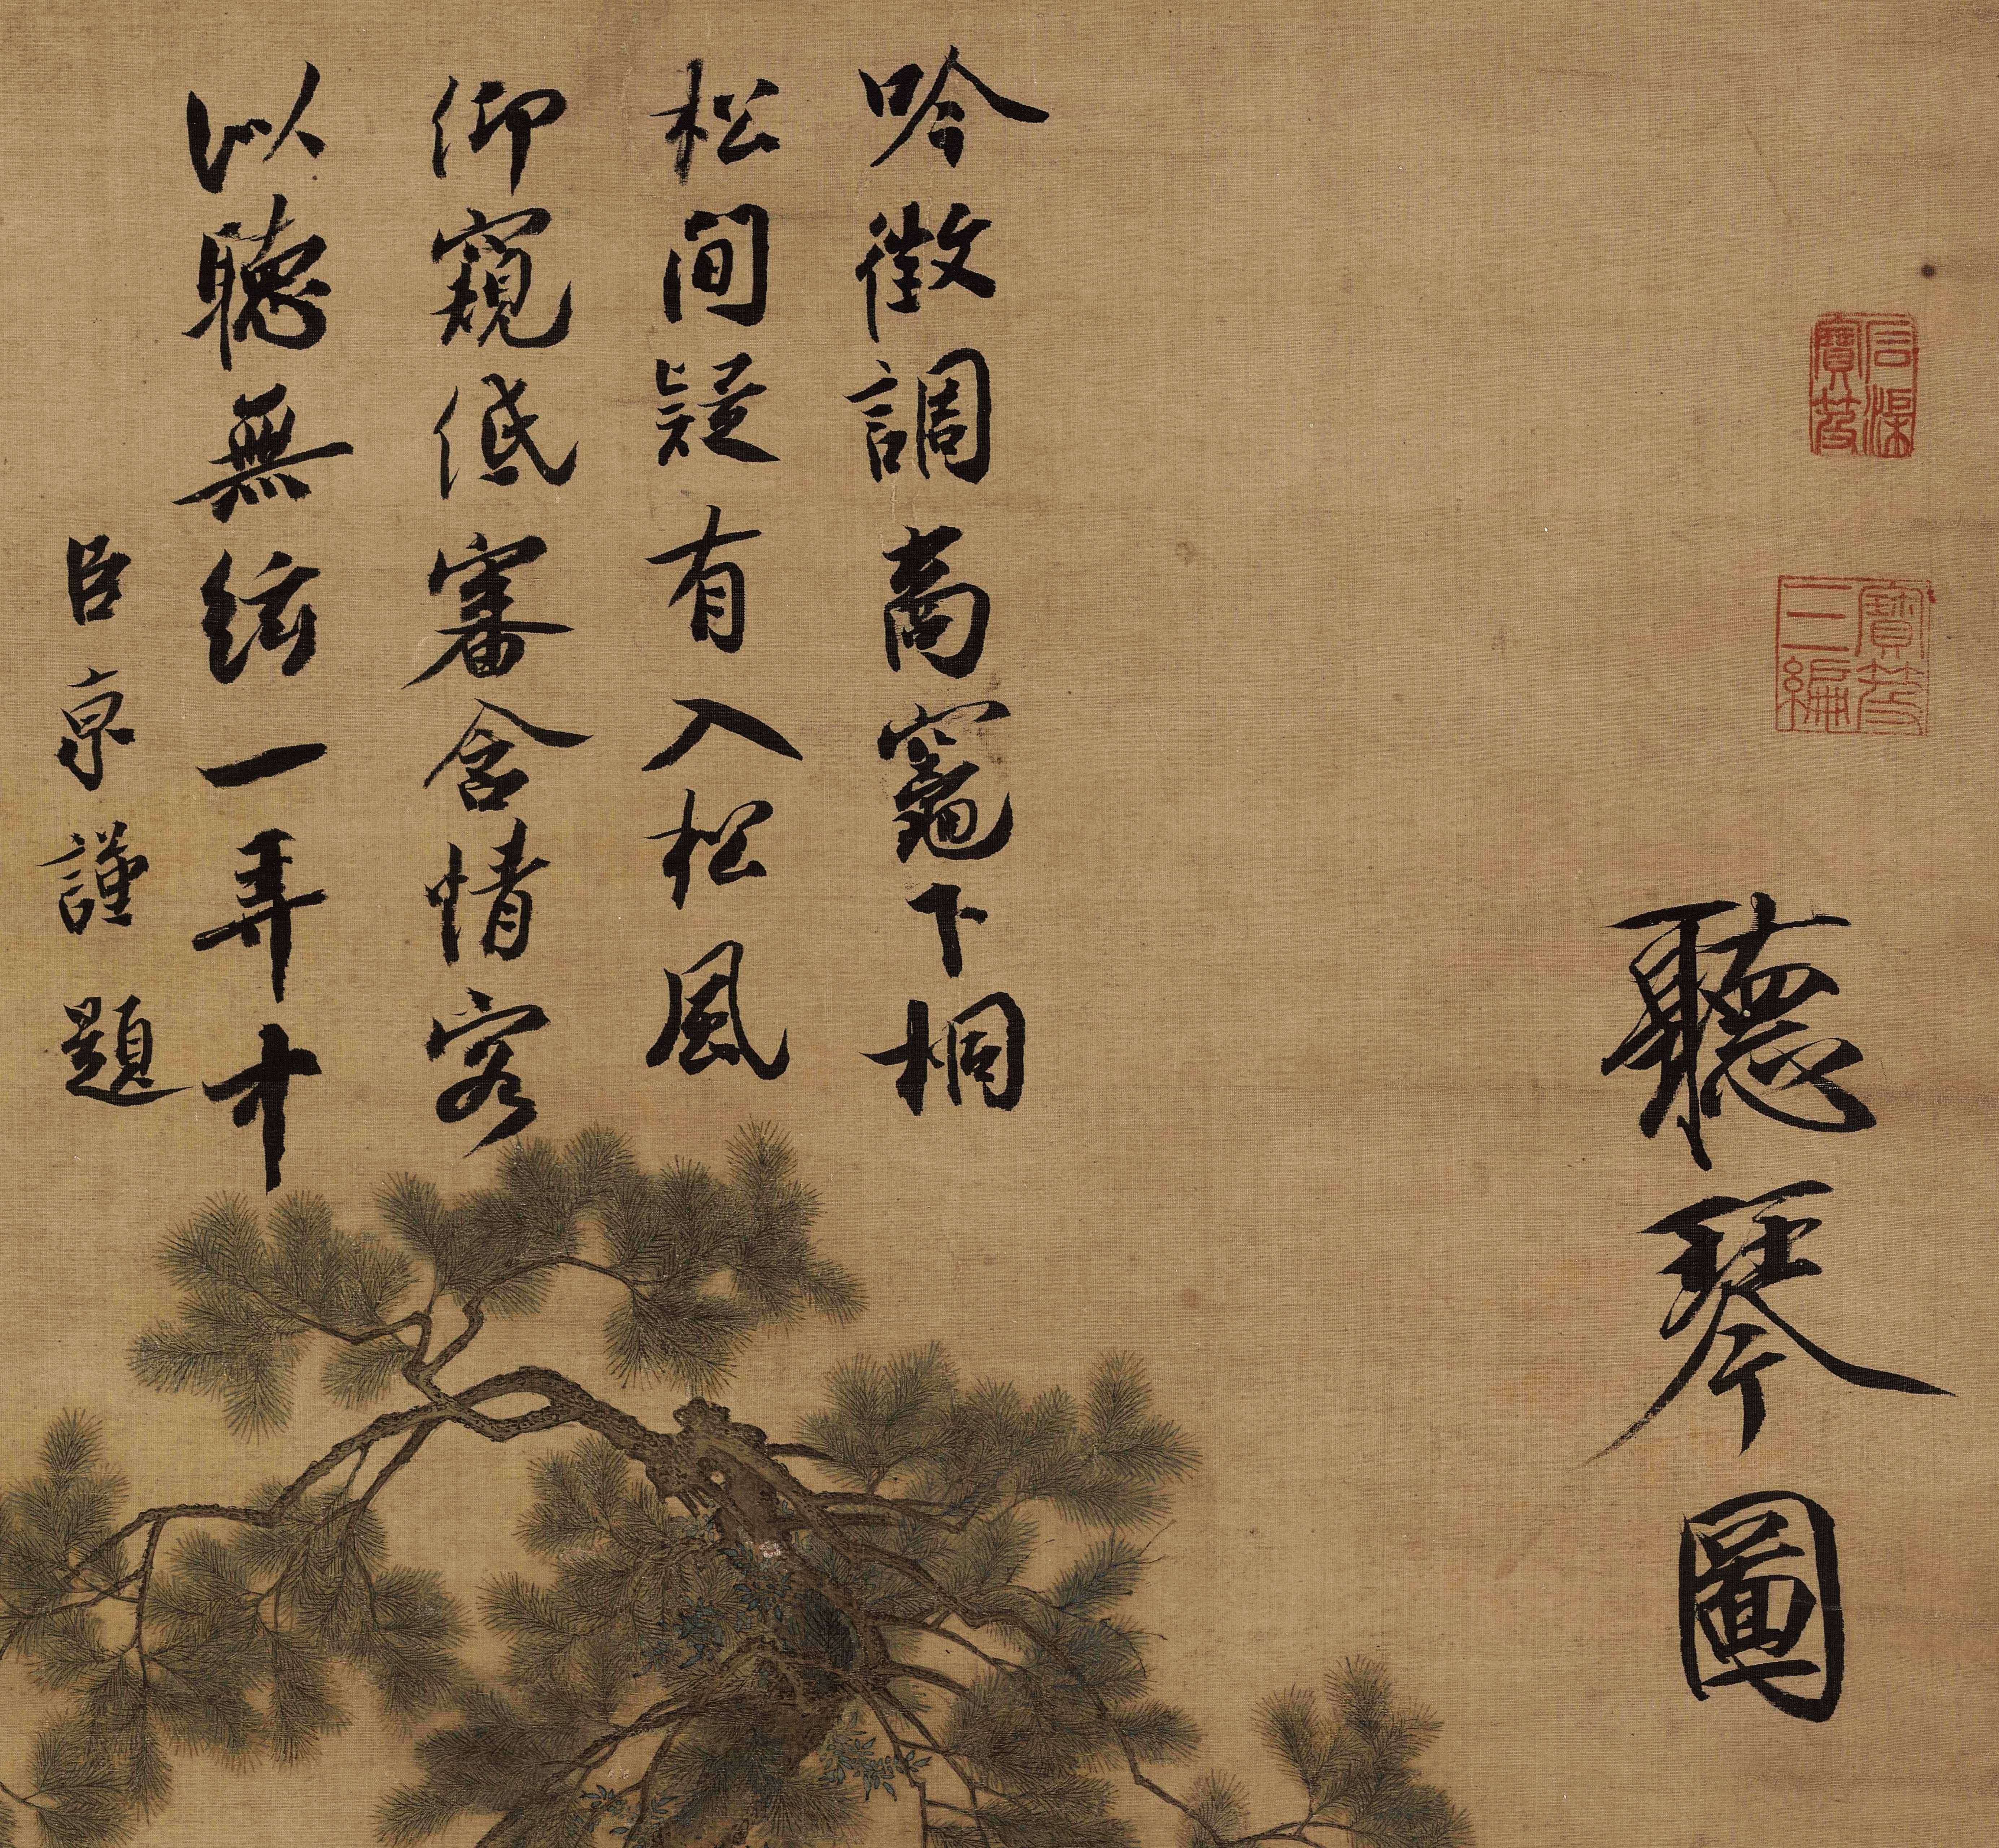 石渠寶笈
寶笈三編
聽琴圖
吟徵調商竈下桐
松間疑有入松風
仰窺低審含情客
以聽無絃一弄中
臣京謹題